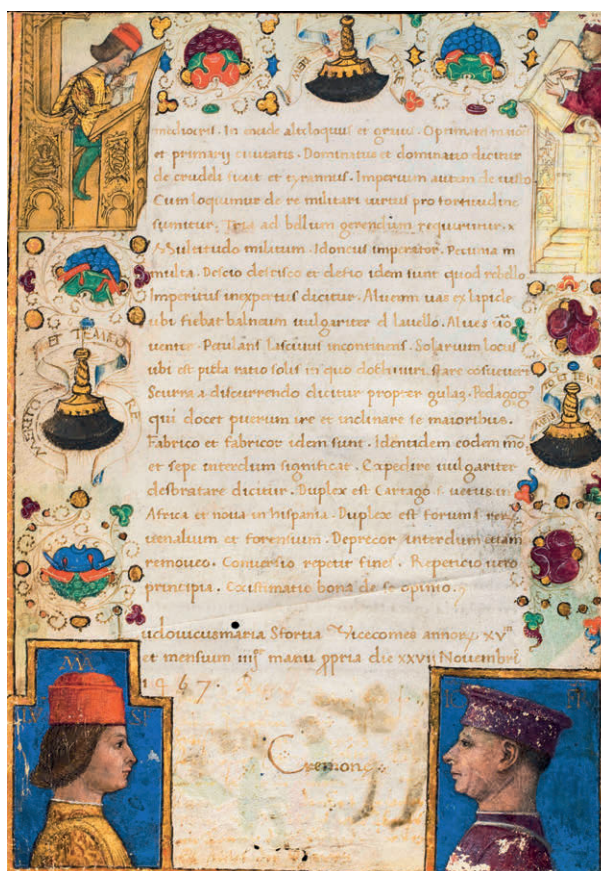 mediocris. In caude alteloquus et gravis. Optimatu
et primarij civitatis. Dominatus et dominatio dicitur
de crudeli sicut et tyrannus. Imperium autem de iusto
Cum loquimur de re militari virtus pro fortitudine
sumitur. Tria ad bellum gerendum requiruntur.
Multitudo militum. Idoneus imperator. Pecunia
multa. Descio descisco et deficio idem sunt quod rebello
Imperitus inexpertus dicitur. Alveum vas ex lapide
ubi fiebat balneum vulgariter el lavello. Alveus
venter. Petulans lascivus incontinens. Solarium locus
ubi est picta ratio solis in quo docti viri stare
Scurra a discurrendo dicitur propter gulam. Pedagog
qui docet puerum ire et inclinare se maioribus.
Fabrico et fabricor idem sunt. Identidem eodem mō
et sepe interdum significat. Expedire vulgariter
desbratare dicitur. Duplex est Cartago s. vetus in
Africa et nova in hispania. Duplex est forum
venalium et forensium. Deprecor interdum etiam
removeo. Conversio repetit fines. Repeticio vero
principia. Existimatio bona de se opinio.
udovicusmaria Sfortia Vicecomes annorum xv
et mensium iiij manu ppria die xxvii Novembris
1467.
Cremone
MERITO
ET TEMPORE
MA